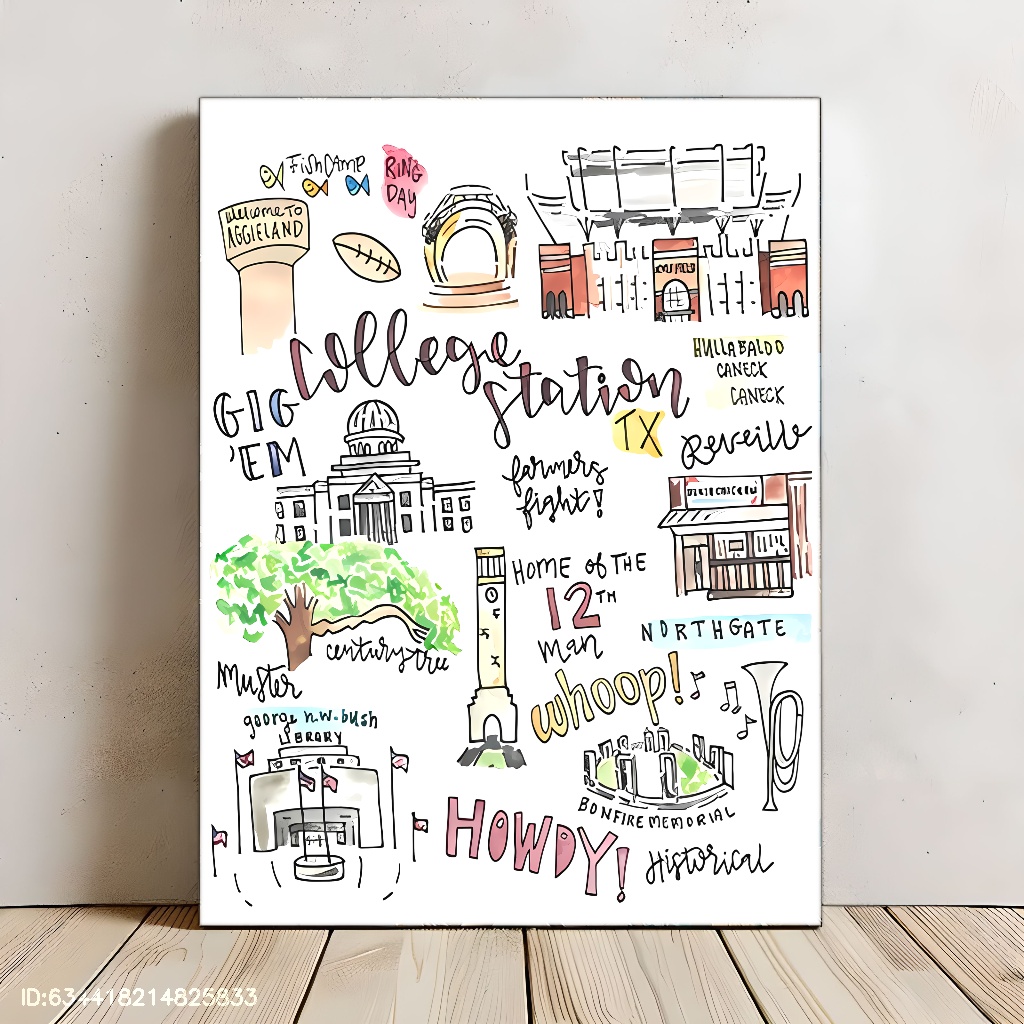 FishCamp
RING
DAY
Welcome TO
AGGIELAND
College
Station
TX
HULLABALOO
CANECK
CANECK
GIG
'EM
Reveille
farmers
fight!
HOME of THE
12TH
man
NORTHGATE
century tree
Muster
whoop!
george h.w. bush
BRARY
BONFIRE MEMORIAL
HOWDY!
Historical
ID:634418214825833